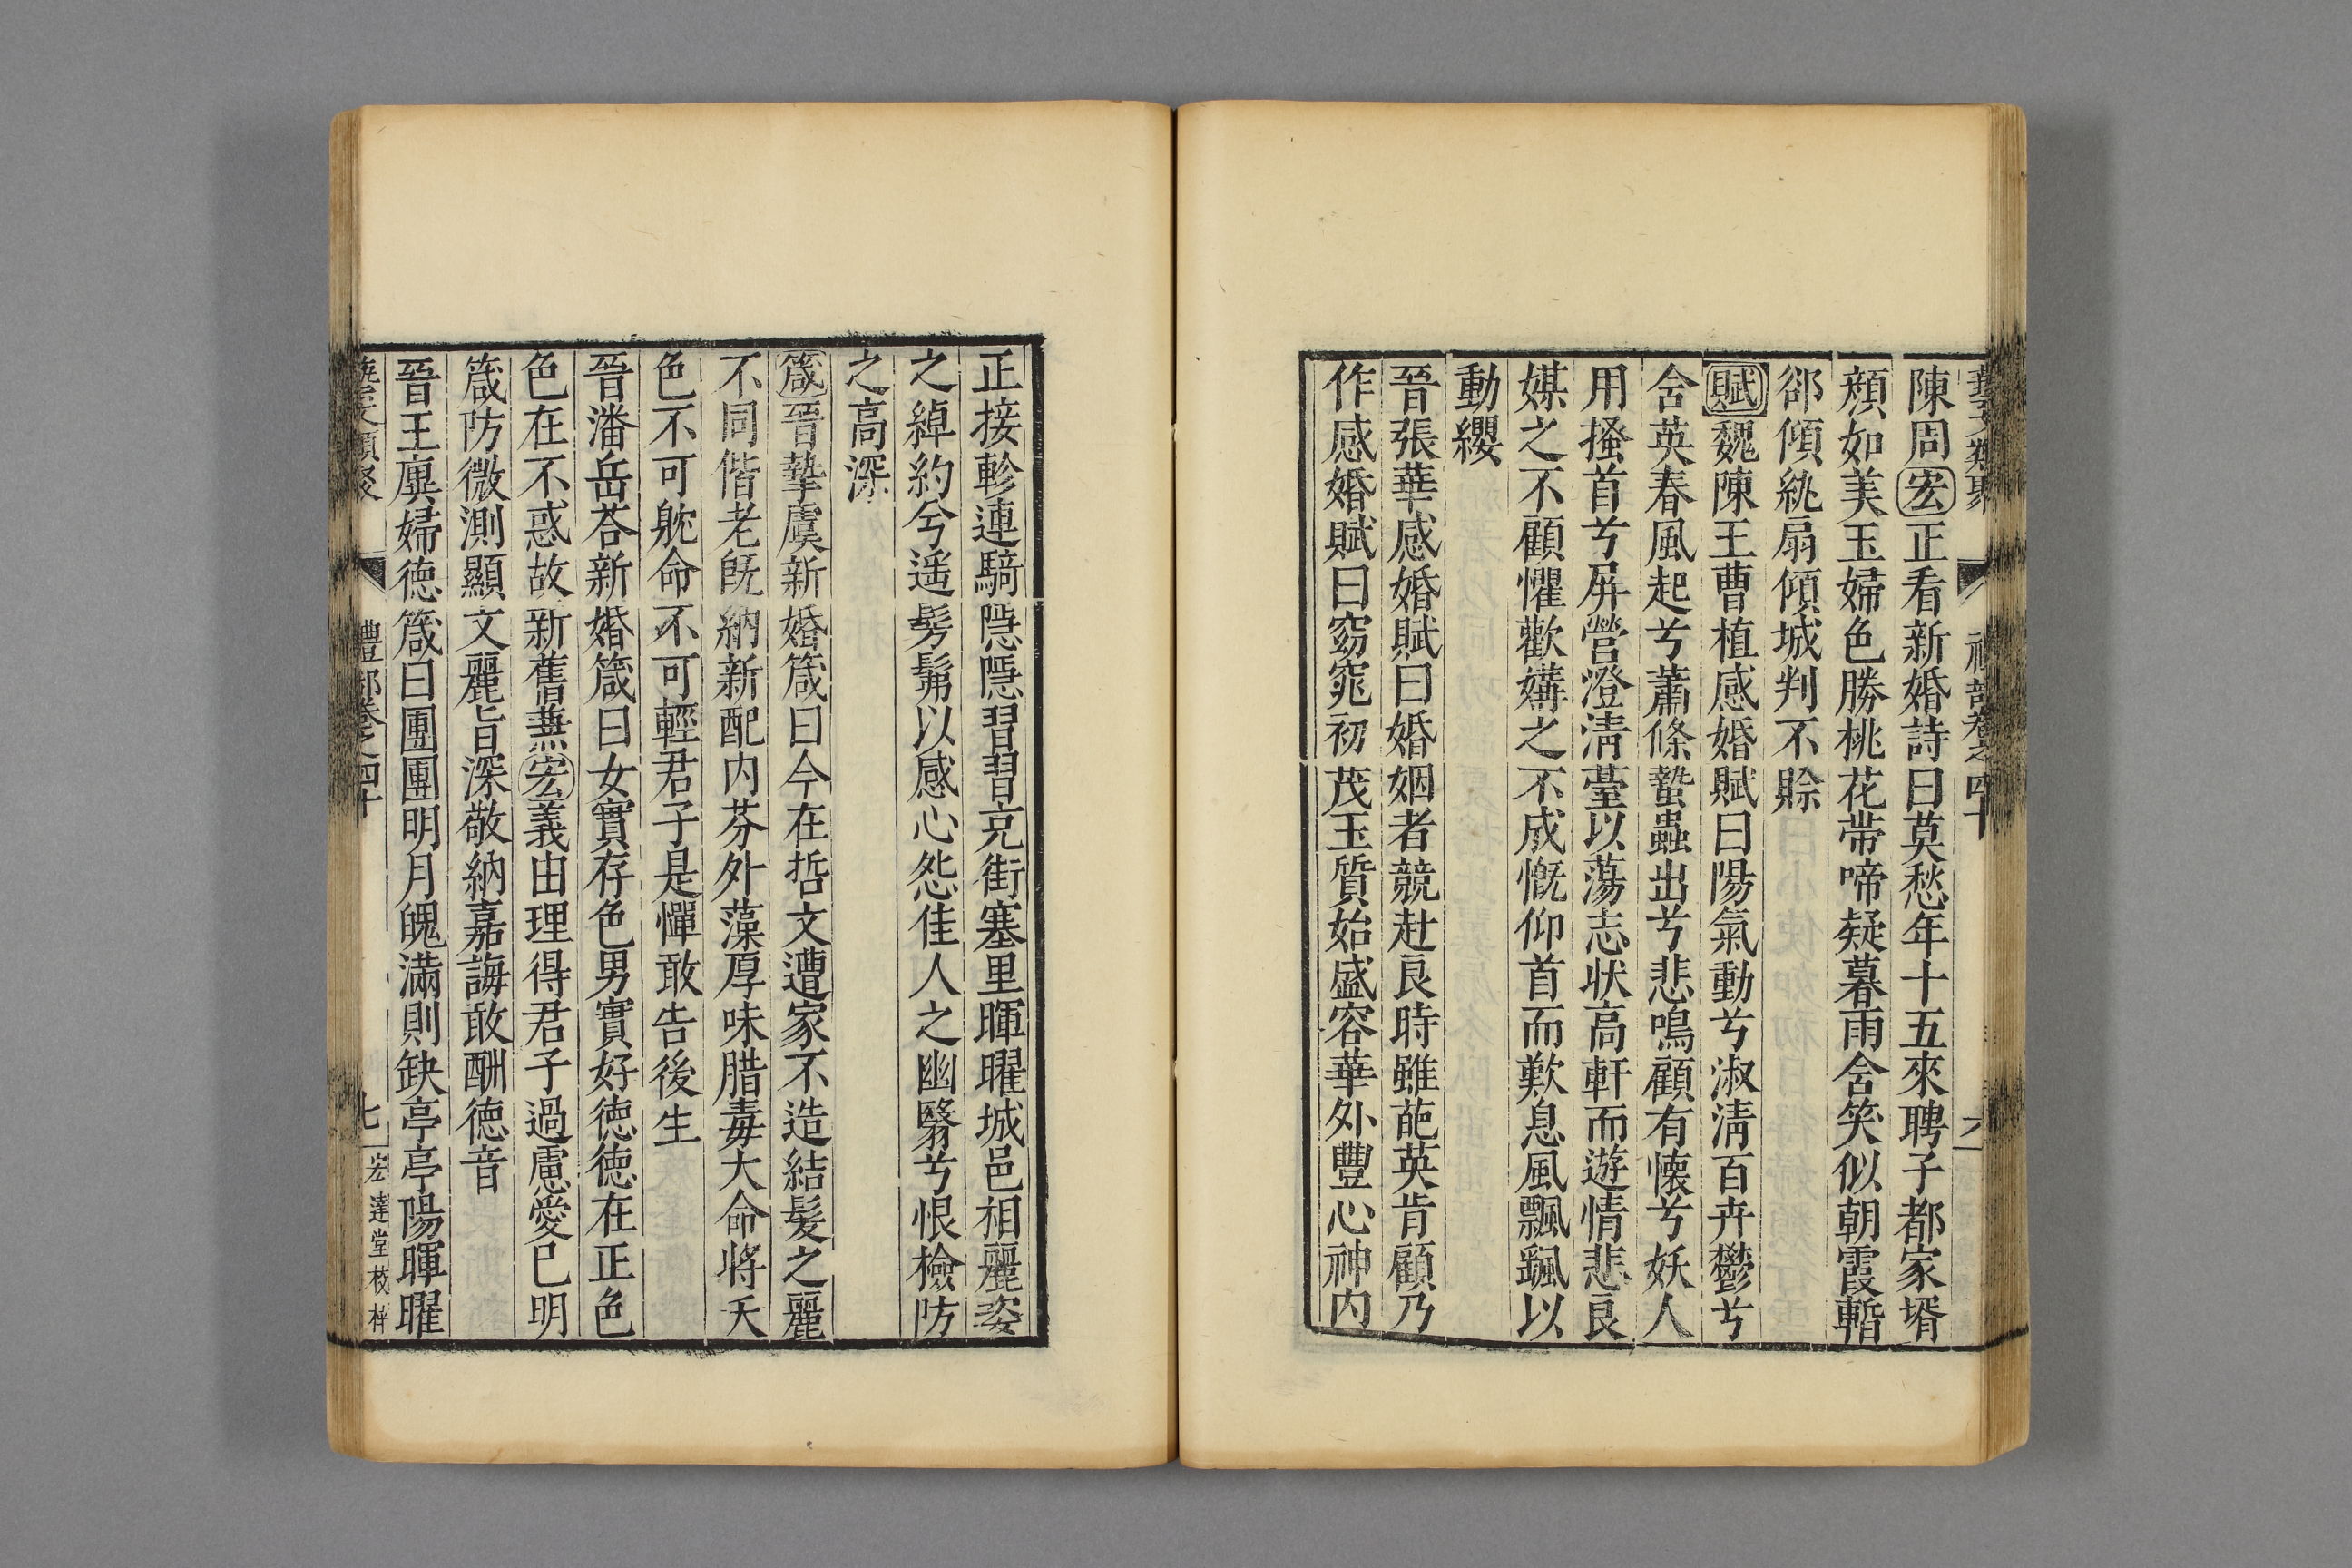 藝文類聚 禮部卷之四十 六
陳周宏正看新婚詩曰莫愁年十五來聘子都家壻
頰如美玉婦色勝桃花帶啼疑暮雨含笑似朝霞暫
郤傾綂扇傾城判不賒
賦魏陳王曹植感婚賦曰陽氣動兮淑淸百卉鬱兮
含英春風起兮蕭條蟄蟲出兮悲鳴顧有懷兮妖人
用搔首兮屏營澄淸臺以蕩志狀高軒而遊情悲良
媒之不顧懼歡媾之不成慨仰首而歎息風飄颻以
動纓
晉張華感婚賦曰婚姻者競赴良時雖葩英肯顧乃
作感婚賦曰窈窕初茂玉質始盛容華外豐心神内
正接軫連騎隱隱習習充街塞里暉曜城邑相麗姿
之綽約兮遥髣髴以感心怨佳人之幽翳兮恨檢防
之高深
箴晉摯虞新婚箴曰今在哲文遭家不造結髮之麗
不同偕老旣納新配内芬外藻厚味腊毒大命將夭
色不可躭命不可輕君子是憚敢告後生
晉潘岳荅新婚箴曰女實存色男實好德德在正色
色在不惑故新舊無宏義由理得君子過慮愛已明
箴防微測顯文麗旨深敬納嘉誨敢酬德音
晉王廙婦德箴曰團團明月魄滿則缺亭亭陽暉曜
藝文類聚 禮部卷之四十 七 宏達堂校梓